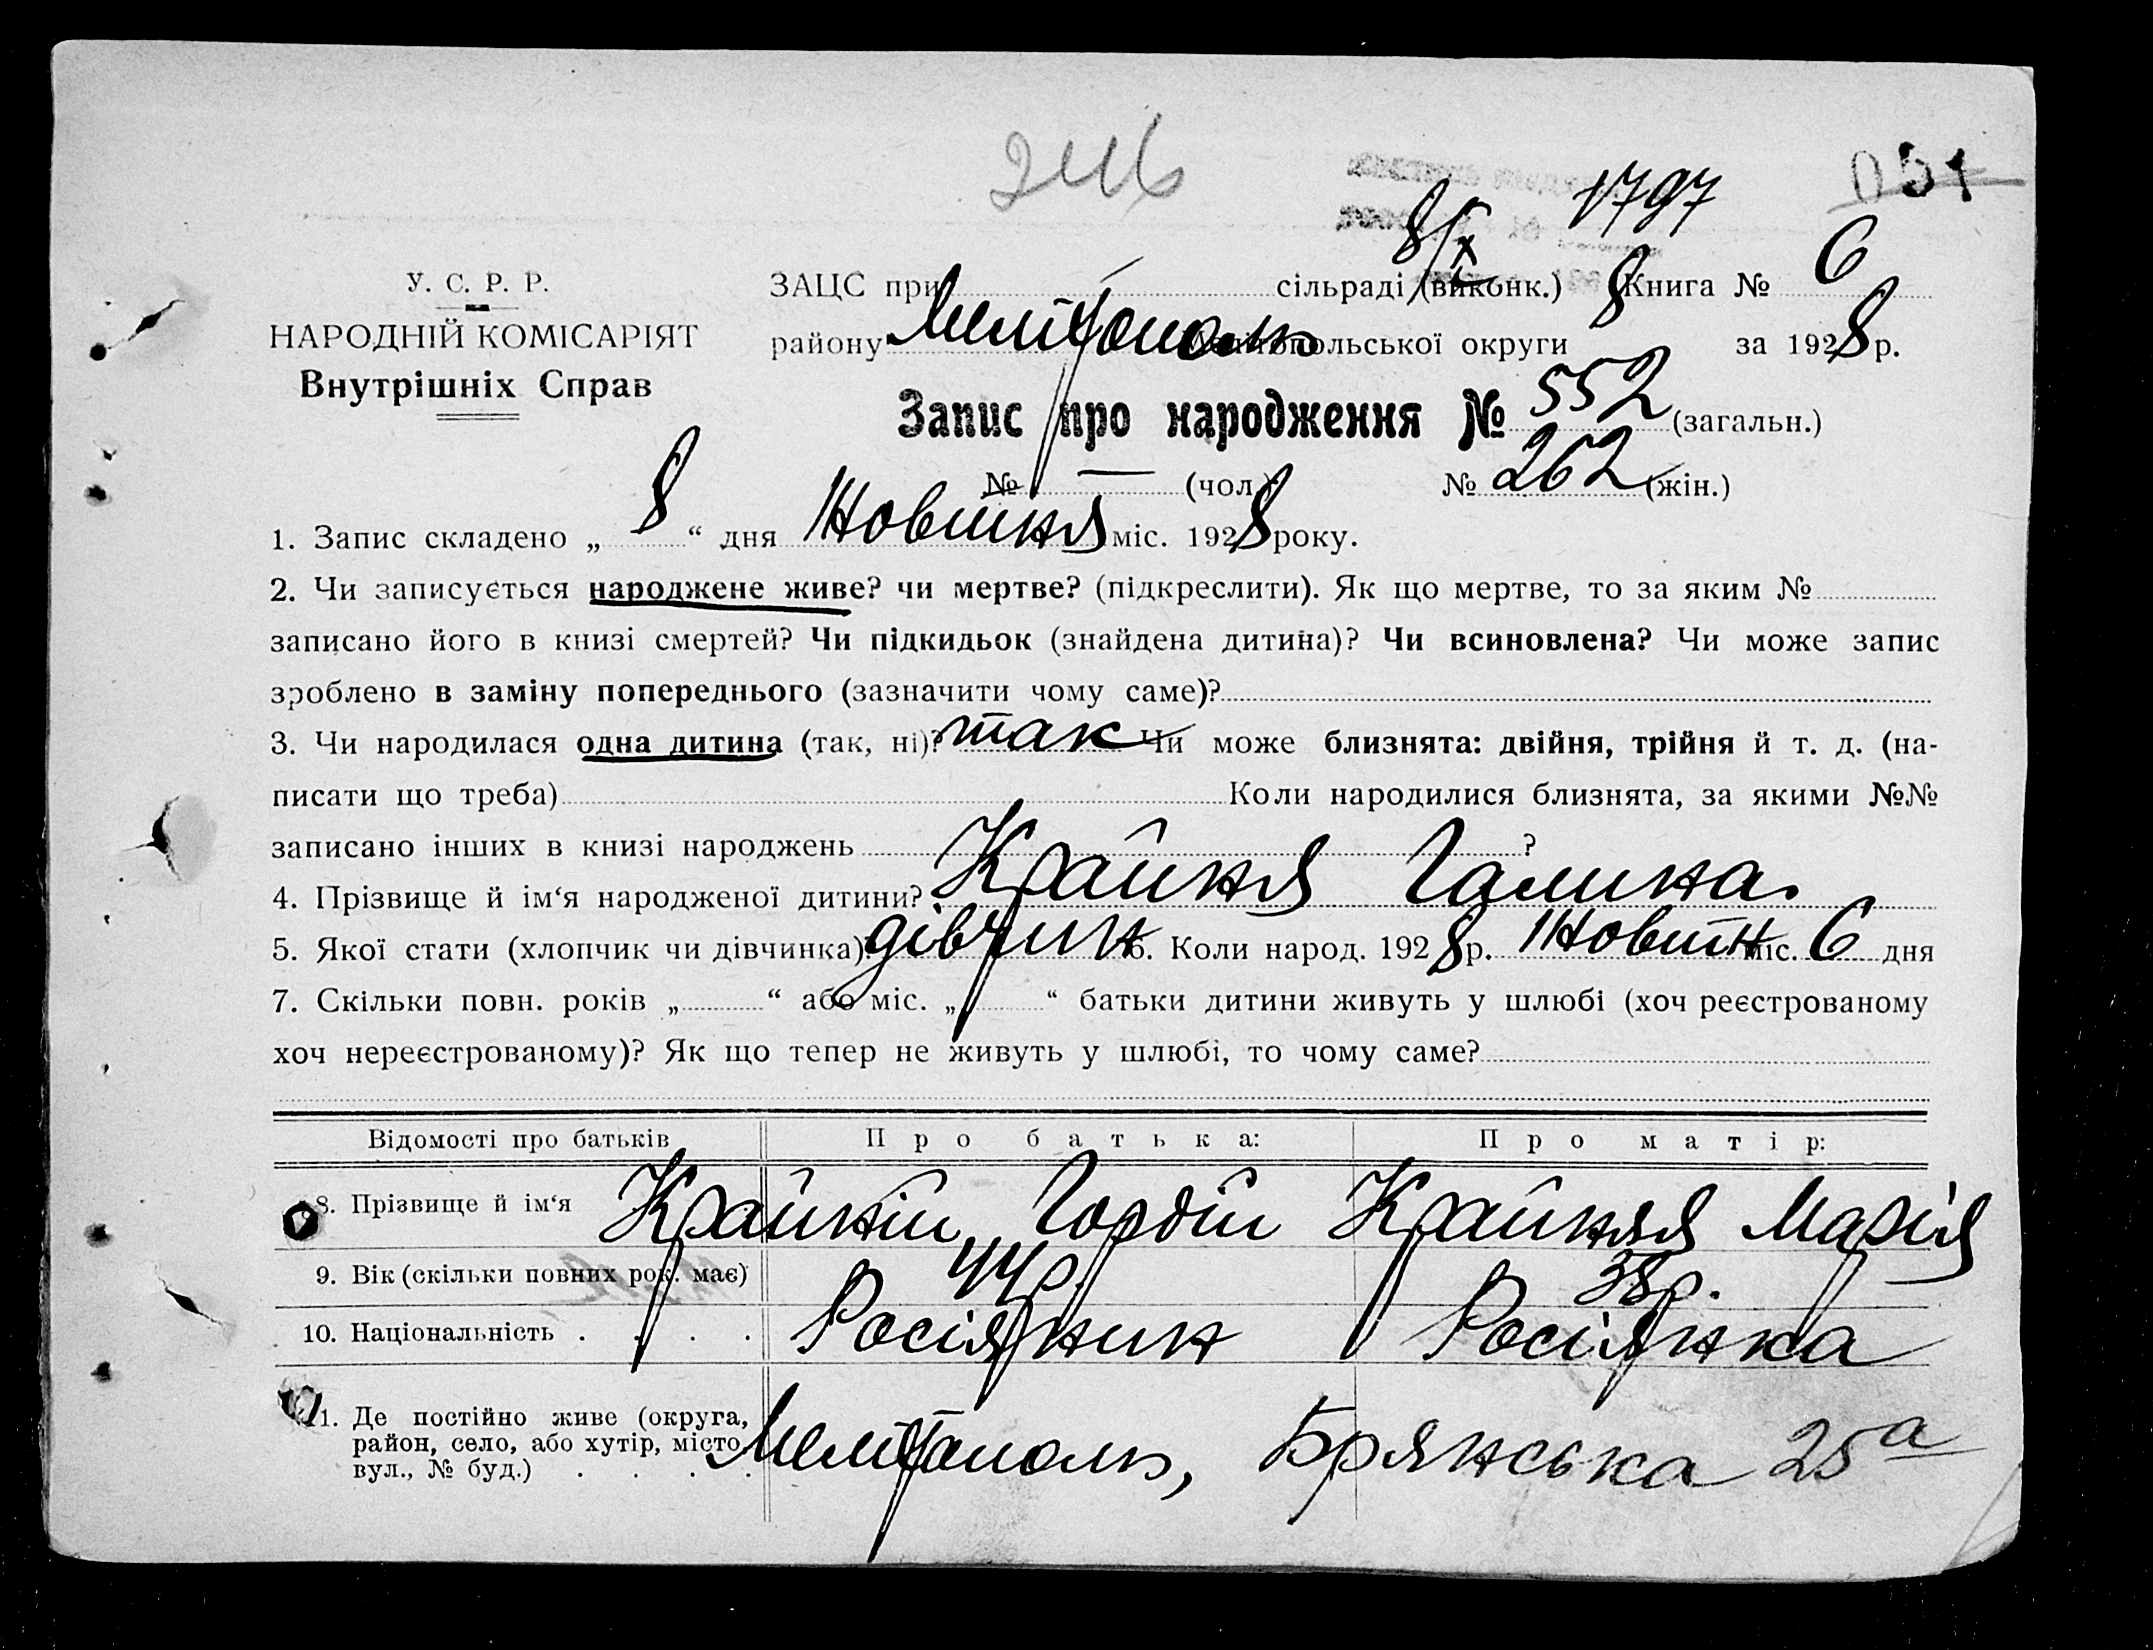 246
1797
051
8/X
У. С. Р. Р.
НАРОДНІЙ КОМІСАРІЯТ
Внутрішніх Справ
ЗАЦС при сільраді (виконк.) Книга № 6
району Мелітополь Мелітопольської округи за 1928 р.
Запис про народження № 552 (загальн.)
№ — (чол.) № 262 (жін.)
1. Запис складено „ 8 “ дня Жовтня міс. 1928 року.
2. Чи записується народжене живе? чи мертве? (підкреслити). Як що мертве, то за яким №
записано його в книзі смертей? Чи підкидьок (знайдена дитина)? Чи всиновлена? Чи може запис
зроблено в заміну попереднього (зазначити чому саме)?
3. Чи народилася одна дитина (так, ні)? так Чи може близнята: двійня, трійня й т. д. (на-
писати що треба) Коли народилися близнята, за якими №№
записано інших в книзі народжень ?
4. Прізвище й ім‘я народженої дитини? Крайня Галина.
5. Якої стати (хлопчик чи дівчинка)? дівчин 6. Коли народ. 1928 р. Жовтн міс. 6 дня
7. Скільки повн. років „ “ або міс. „ “ батьки дитини живуть у шлюбі (хоч реєстрованому
хоч нереєстрованому)? Як що тепер не живуть у шлюбі, то чому саме?
Відомості про батьків Про батька: Про матір:
8. Прізвище й ім‘я Крайній Гордій Крайняя Марія
9. Вік (скільки повних рок. має) 44р. 38р.
10. Національність . . . . Росіянин Росіянка
11. Де постійно живе (округа,
район, село, або хутір, місто,
вул., № буд.) . . . . Мелітополь, Брянська 25а